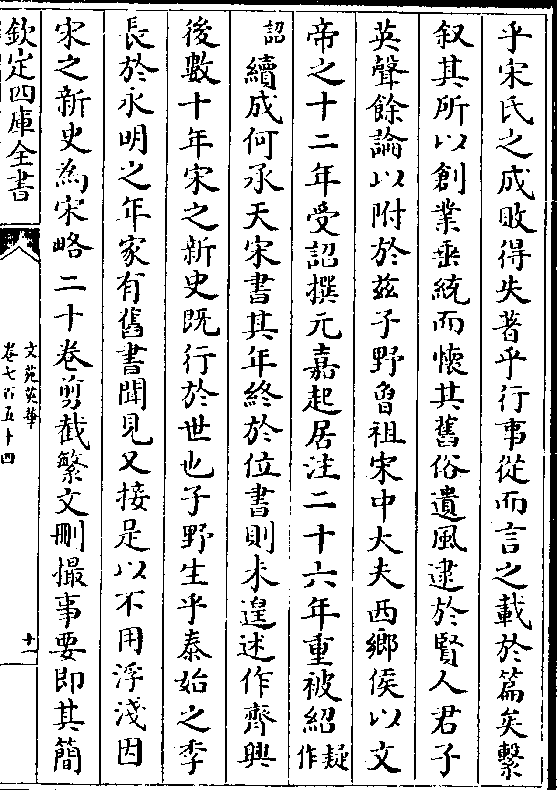 乎宋氏之成敗得失著乎行事從而言之載於篇矣繫
叙其所以創業垂統而懷其舊俗遺風逮於賢人君子
英聲餘論以附於兹子野魯祖宋中大夫西鄉侯以文
帝之十二年受詔撰元嘉起居注二十六年重被紹疑作
詔續成何承天宋書其年終於位書則未遑述作齊興
後數十年宋之新史既行於世也子野生乎泰始之季
長於永明之年家有舊書聞見又接是以不用浮淺因
宋之新史為宋略二十卷剪截繁文刪撮事要即其簡
欽定四庫全書
文苑英華
卷七百五十四
十一